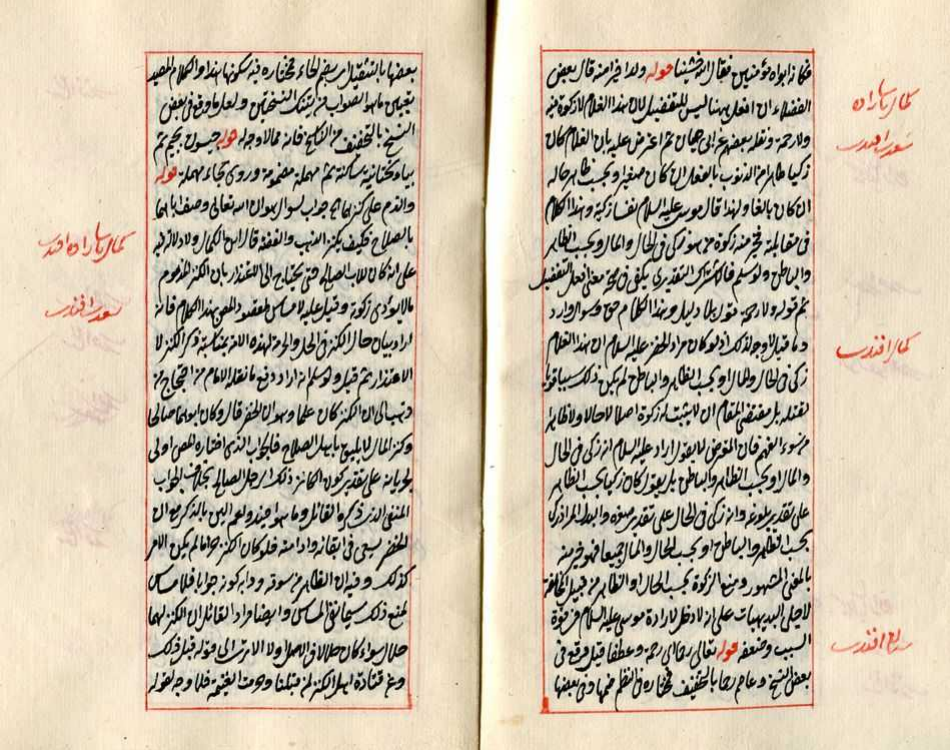 فكان ابواه مؤمنين فقال ان خشينا قوله ولدا خيرا منه قال بعض
الفضلاء ان افعل ههنا ليس للتفضيل لان هذا الغلام لا زكوة فيه
ولا رحمة ونقله بعضهم عن ابى حيان ثم اعترض عليه بان الغلام كان
زكيا طاهرا من الذنوب بالفعل ان كان صغيرا وبحسب ظاهر حاله
ان كان بالغا ولهذا قال موسى عليه السلام نفسا زكية وهذا الكلام
فى مقابلة خير منه زكوة من هو زكى فى الحال والمال وبحسب الظاهر
والباطن ولو سلم فالاشتراك التقديرى يكفى فى صحة معنى افعل التفضيل
ثم قوله ولا رحمة قول بلا دليل وهذا الكلام حق وسؤال وارد
وما قيل لا وجه لذلك اذ لو كان مراد الخضر عليه السلام ان هذا الغلام
زكى فى الحال والمال او بحسب الظاهر والباطن لم يكن ذلك سببا قويا
لقتله بل مقتضى المقام ان لا يثبت له زكوة اصلا لا حالا ولا ظاهرا
من سوء الفهم فان المعترض لا يقول اراد عليه السلام انه زكى فى الحال
والمال او بحسب الظاهر والباطن بل يقول كان زكيا بحسب الظاهر
على تقدير بلوغه وانه زكى فى الحال على تقدير صغره والبدل المراد زكى
بحسب الظاهر والباطن او بحسب الحال والمال جميعا فهو خير منه
بالمعنى المشهور ومنع الزكوة بحسب الحال او الظاهر من قبيل المخالفة
لاجلى البديهيات على انه لا دخل لارادة موسى عليه السلام فى قوة
السبب وضعفه قوله تعالى رحما اى رحمة وعطفا قيل وقع فى
بعض النسخ وعاصم رحما بالتخفيف مختاره فى النظم ضمها وفى بعضها
كمال پاشا زاده
سعدى افندى
كمال افندى
بعضها بالتثقيل اى بضم الحاء مختاره فيه سكونها هذا والكلام المفيد
بتعيين ما هو الصواب من تينك النسختين ولعل ما وقع فى بعض
النسخ بالتخفيف من الناسخ فانه مما لا وجه له قوله جيسون بجيم ثم
بياء تحتانية ساكنة ثم مهملة مضمومة وروى بحاء مهملة قوله
والذم على كنزهما جواب لسؤال هو ان الله تعالى وصف اباهما
بالصلاح فكيف يكنز الذهب والفضة قال ابن الكمال ولا دلالة فيه
على انه كان للاب الصالح حتى يحتاج الى الاعتذار بان الكنز المذموم
ما لا يؤدى زكوته وقيل عليه لا مساس لمقصود المص بهذا الكلام فانه
اراد بيان حال الكنز فى الحل والحرمة لهذه الامة بمناسبة ذكر الكنز لا
الاعتذار ثم قيل ولو سلم انه اراد دفع ما نقله الامام من احتجاج من
ذهب الى ان الكنز كان علما وهو ان الخضر قال وكان ابوهما صالحا
وكنز المال لا يليق باهل الصلاح فالجواب الذى اختاره المص اولى
لجريانه على تقدير كون الكانز ذلك الرجل الصالح بخلاف الجواب
المنفى الذى ذكره القائل وما هو اجد
الخضر سعى فى ابقائه وادامته فلو كان الكنز حراما لم يكن الامر
كذلك وفيه ان الظاهر من سوقه ودابه كونه جوابا فلا مساس
لمنع ذلك المساس وايضا مراد القائل ان الكنز لهما
حلال سواء كان حلالا فى الاصل اولا الا ترى الى قوله قبل ذلك
وعن قتادة احل الكنز لمن قبلنا وحرمت الغنيمة فلا وجه لقوله
كمال پاشا زاده افندى
سعدى افندى